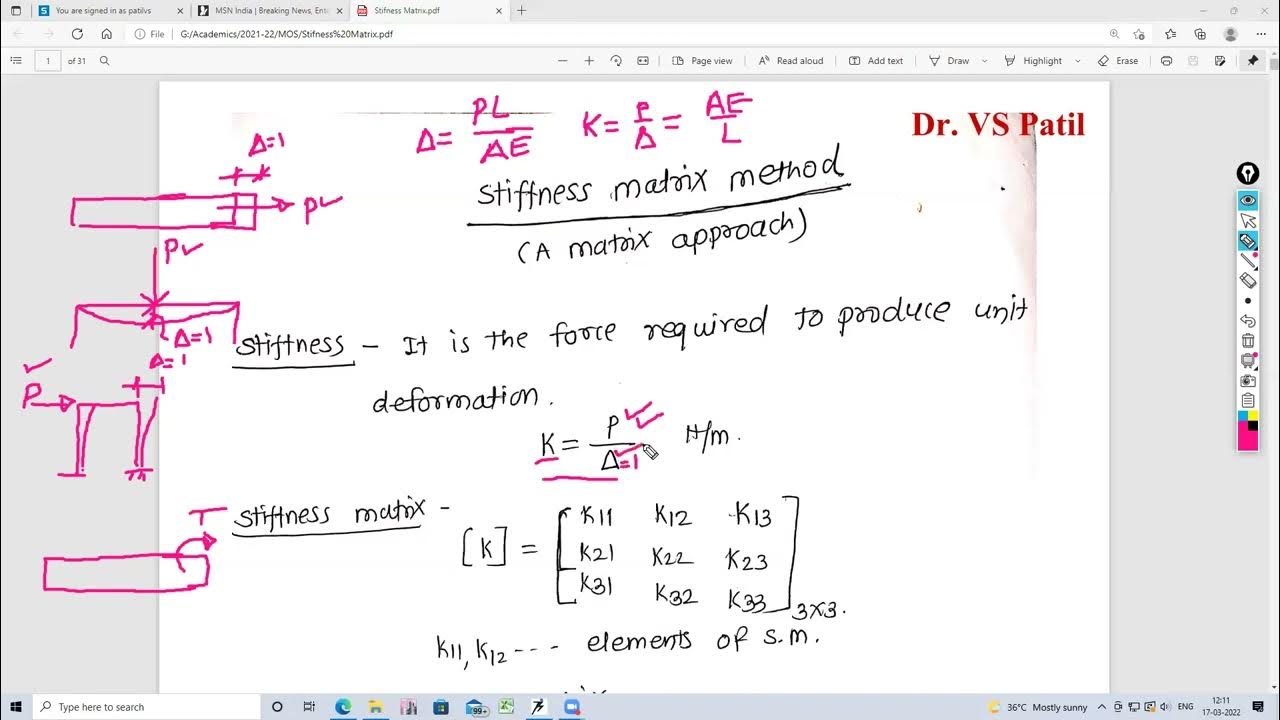 You are signed in as patilvs
MSN India | Breaking News, Ente
Stifness Matrix.pdf
File
G:/Academics/2021-22/MOS/Stifness%20Matrix.pdf
1 of 31
Page view
Read aloud
Add text
Draw
Highlight
Erase
Δ = PL/AE K = P/Δ = AE/L
Dr. VS Patil
Δ=1
P
stiffness matrix method
(A matrix approach)
P
Δ=1
stiffness - It is the force required to produce unit
deformation.
Δ=1
P
K = P/Δ=1 N/m.
T
stiffness matrix -
[K] = [K11 K12 K13
K21 K22 K23
K31 K32 K33]3x3.
K11, K12 --- elements of S.M.
Type here to search
99+
36°C Mostly sunny
ENG
12:11
17-03-2022